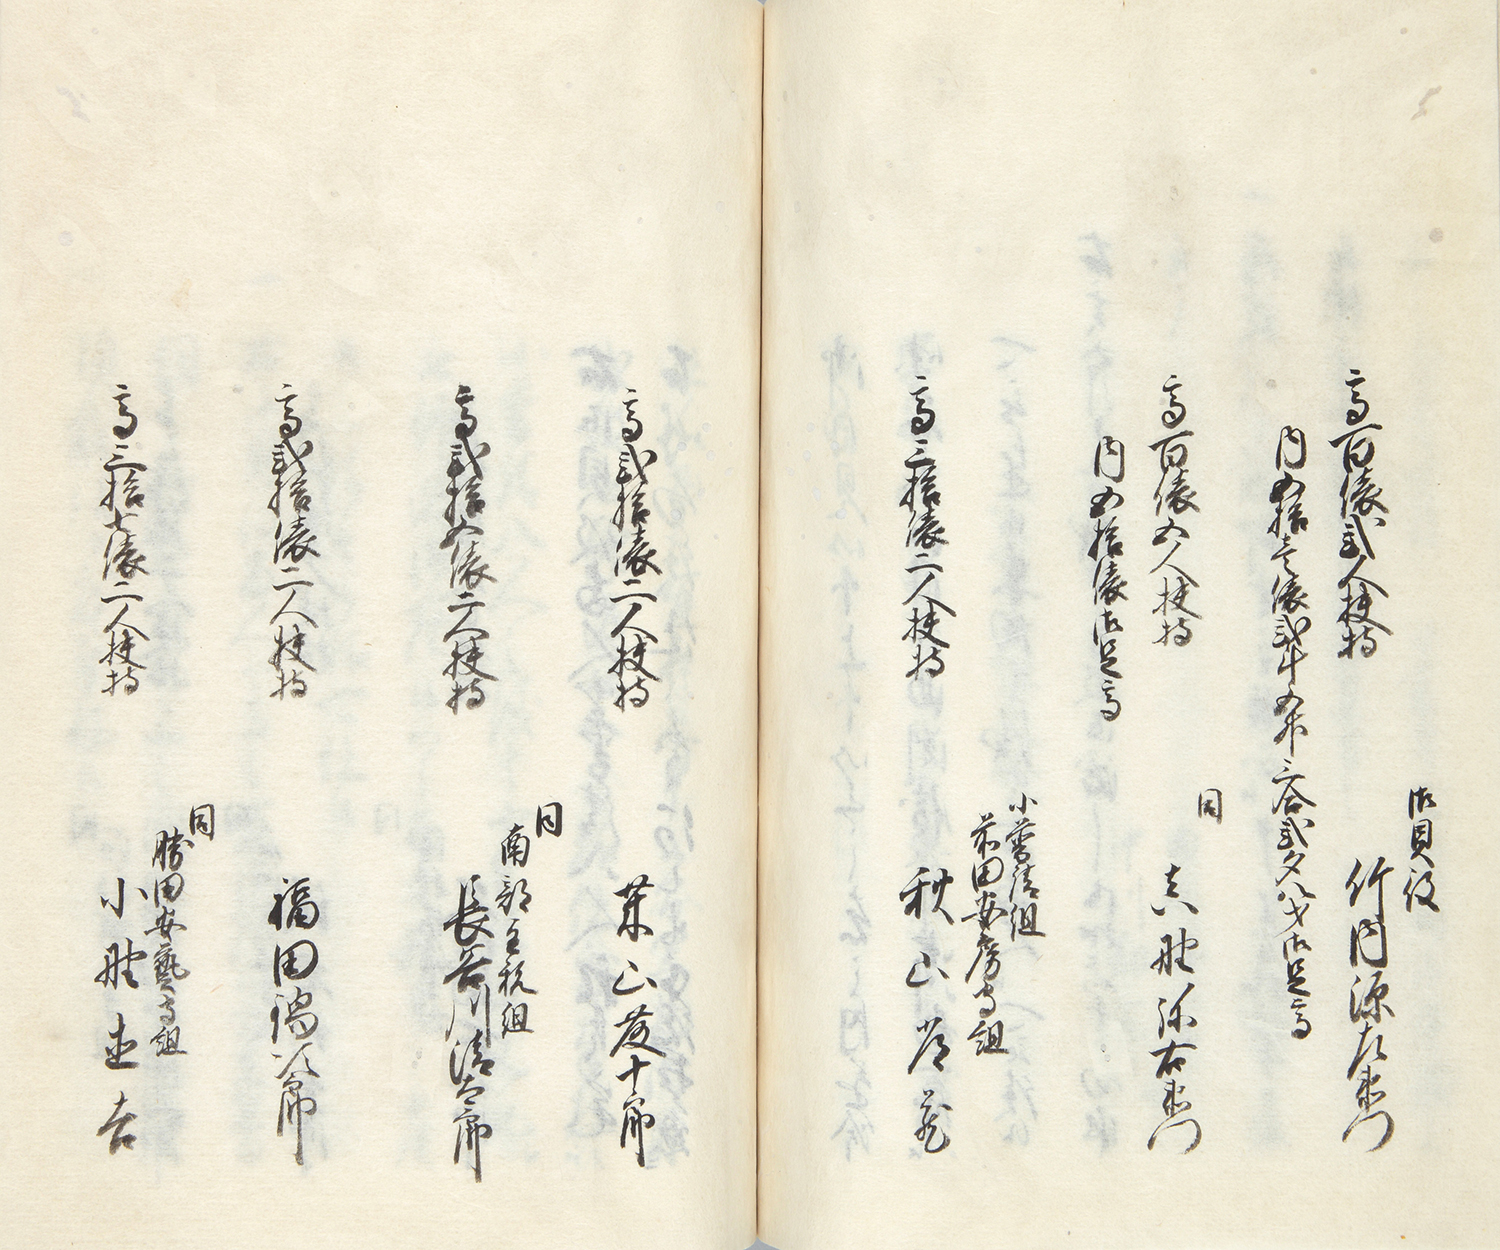 御貝役
高百俵弐人扶持
竹内源左衛門
内五拾壱俵弐斗五升三合弐夕八才御足高
同
高百俵五人扶持
真野弥右衛門
内五拾俵御足高
小普請組
前田安房守組
高三拾俵二人扶持
秋山
高弐拾俵二人扶持
葉山茂十郎
同
南部主税組
高弐拾五俵二人扶持
長谷川清太郎
高弐拾俵二人扶持
福田鍋次郎
同
勝田安藝守組
高三拾七俵二人扶持
小野吉